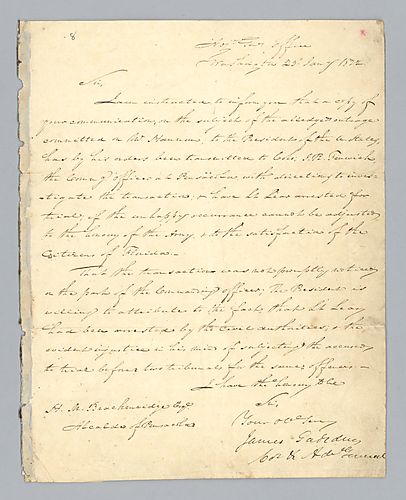 8
Office
Washington 23 Jany 1822
Sir,
I am instructed to inform you that a copy of
your communication, on the subject of the alledged outrage
committed on Mr Hannum, to the President of the U States,
has by his orders been transmitted to Col. Fenwick
the Commg officer at Pensacola with directions to inves-
tigate the transaction, & have Lt Leay arrested for
trial, if the unhappy occurrence cannot be adjusted
to the honor of the Army & to the satisfaction of the
Citizens of Florida.
That the transaction was not promptly noticed
on the part of the Commanding officer, The President is
willing to attribute to the fact, that Lt Leay
had been arrested by the Civil authorities, & the
evident injustice in his mind of subjecting the accused
to trial before two tribunals for the same offence.
I have the honor &c
Sir,
Your Obt Ser
James Gadsden
Col & Adt General
H. M. Brackenridge Esqr
Alcalde of Pensacola